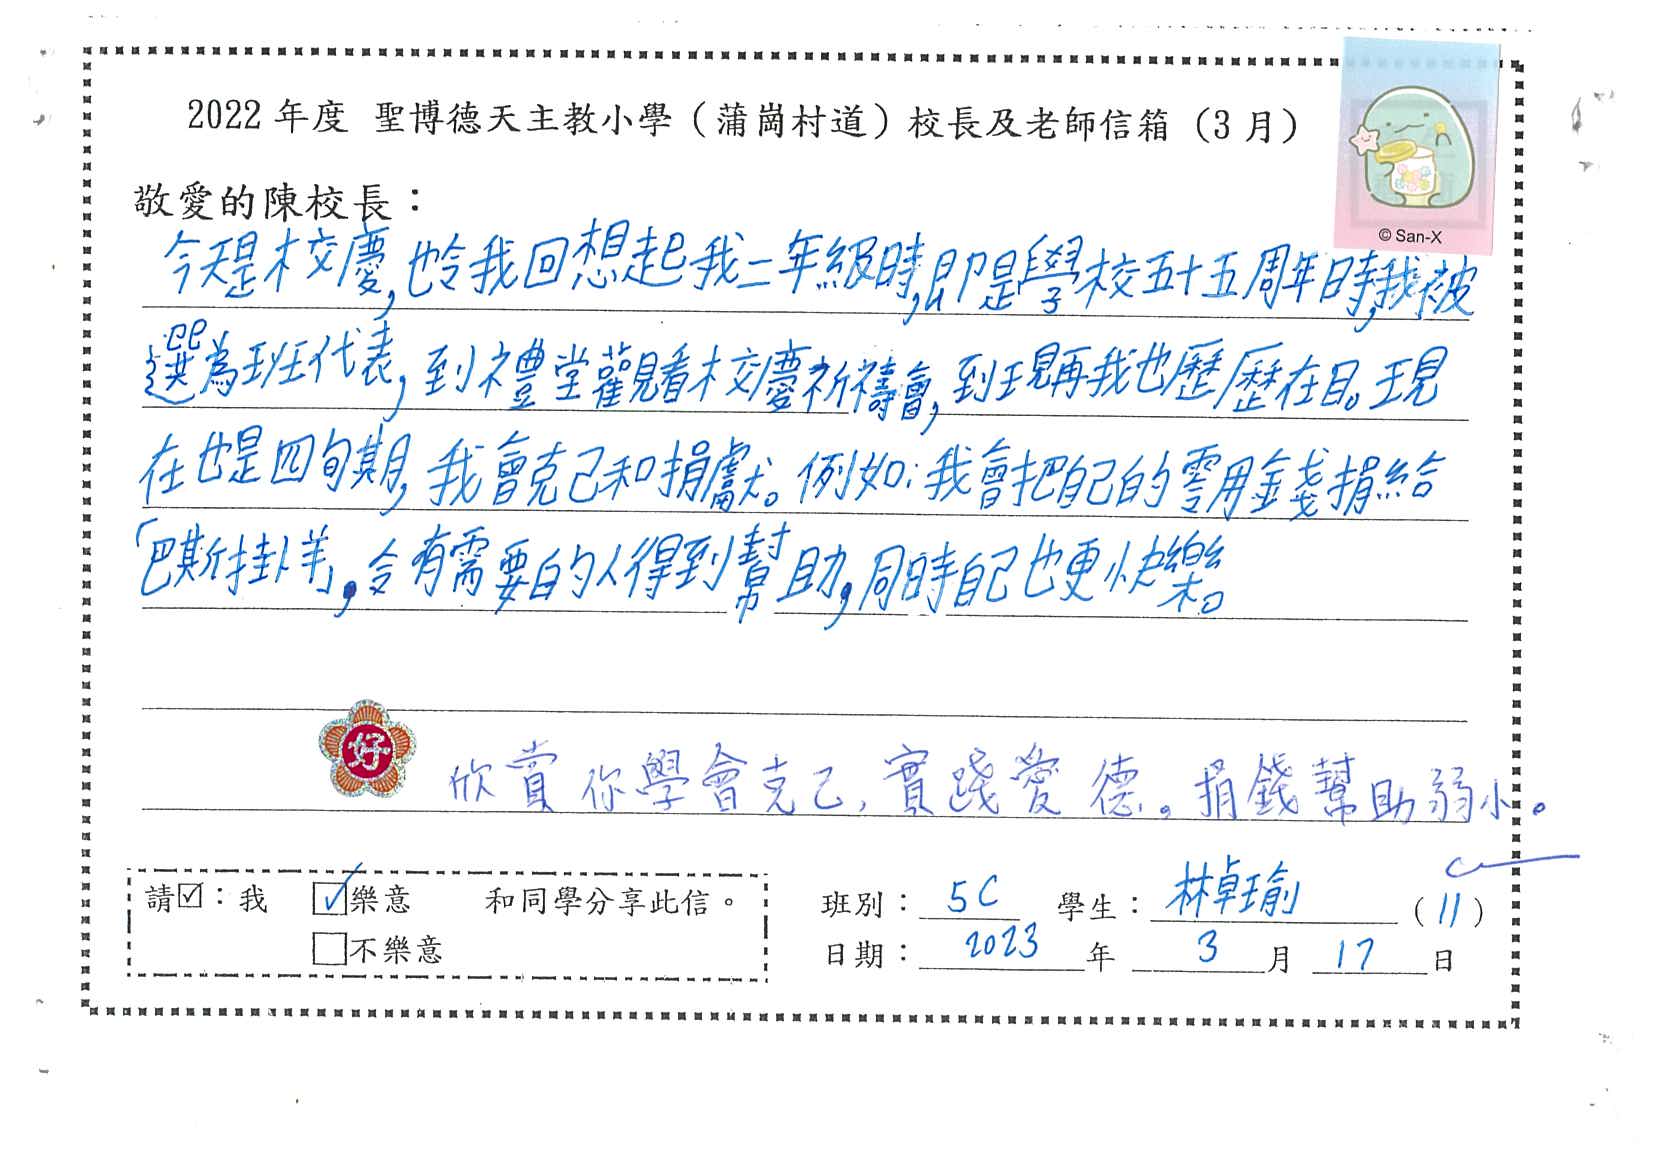 2022 年度 聖博德天主教小學（蒲崗村道）校長及老師信箱（3 月）
© San-X
敬愛的陳校長：
今天是校慶,也令我回想起我二年級時,即是學校五十五周年時,我被
選為班代表,到禮堂觀看校慶祈禱會,到現再我也歷歷在目。現
在也是四旬期,我會克己和捐獻。例如:我會把自己的零用金錢捐給
「巴斯掛羊」,令有需要的人得到幫助,同時自己也更快樂。
好
欣賞你學會克己,實踐愛德。捐錢幫助弱小。
請☑：我 ☑樂意 和同學分享此信。
□不樂意
班別：5C 學生：林卓瑜（11）
日期：2023 年 3 月 17 日